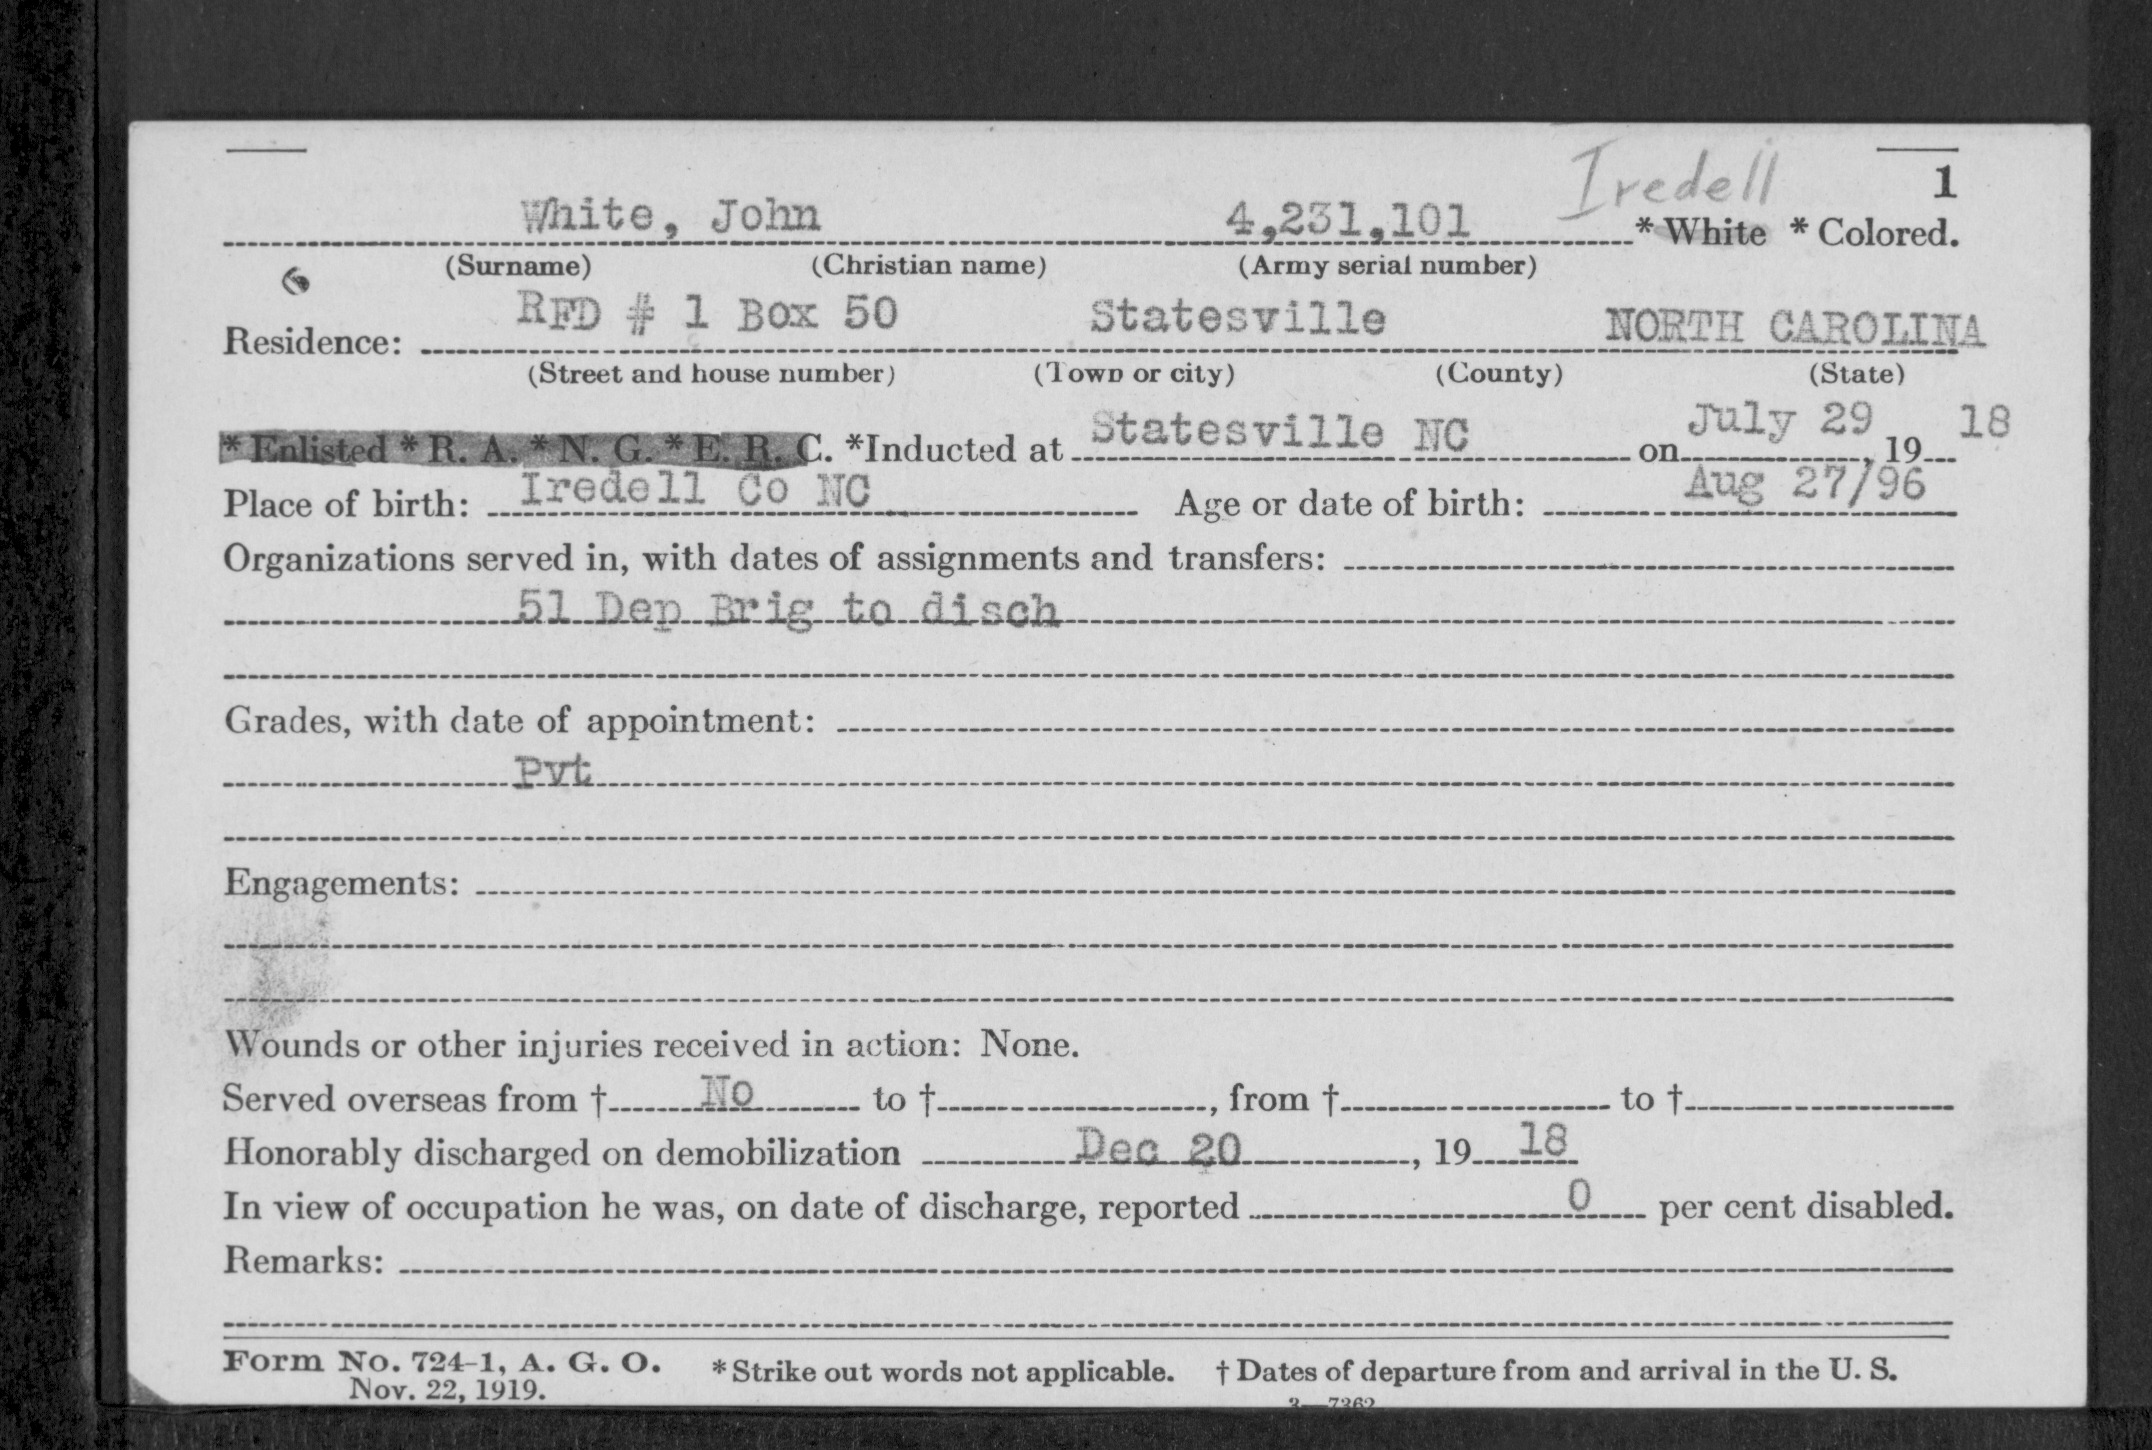 Iredell
1
White, John 4,231,101 * White * Colored.
(Surname) (Christian name) (Army serial number)
RFD # 1 Box 50 Statesville NORTH CAROLINA
Residence:
(Street and house number) (Town or city) (County) (State)
* Enlisted * R. A. * N. G. * E. R. C. *Inducted at Statesville NC on July 29, 19 18
Place of birth: Iredell Co NC Age or date of birth: Aug 27/96
Organizations served in, with dates of assignments and transfers:
51 Dep Brig to disch
Grades, with date of appointment:
Pvt
Engagements:
Wounds or other injuries received in action: None.
Served overseas from † No to †, from † to †
Honorably discharged on demobilization Dec 20, 19 18
In view of occupation he was, on date of discharge, reported 0 per cent disabled.
Remarks:
Form No. 724-1, A. G. O. * Strike out words not applicable. † Dates of departure from and arrival in the U. S.
Nov. 22, 1919.
3—7362